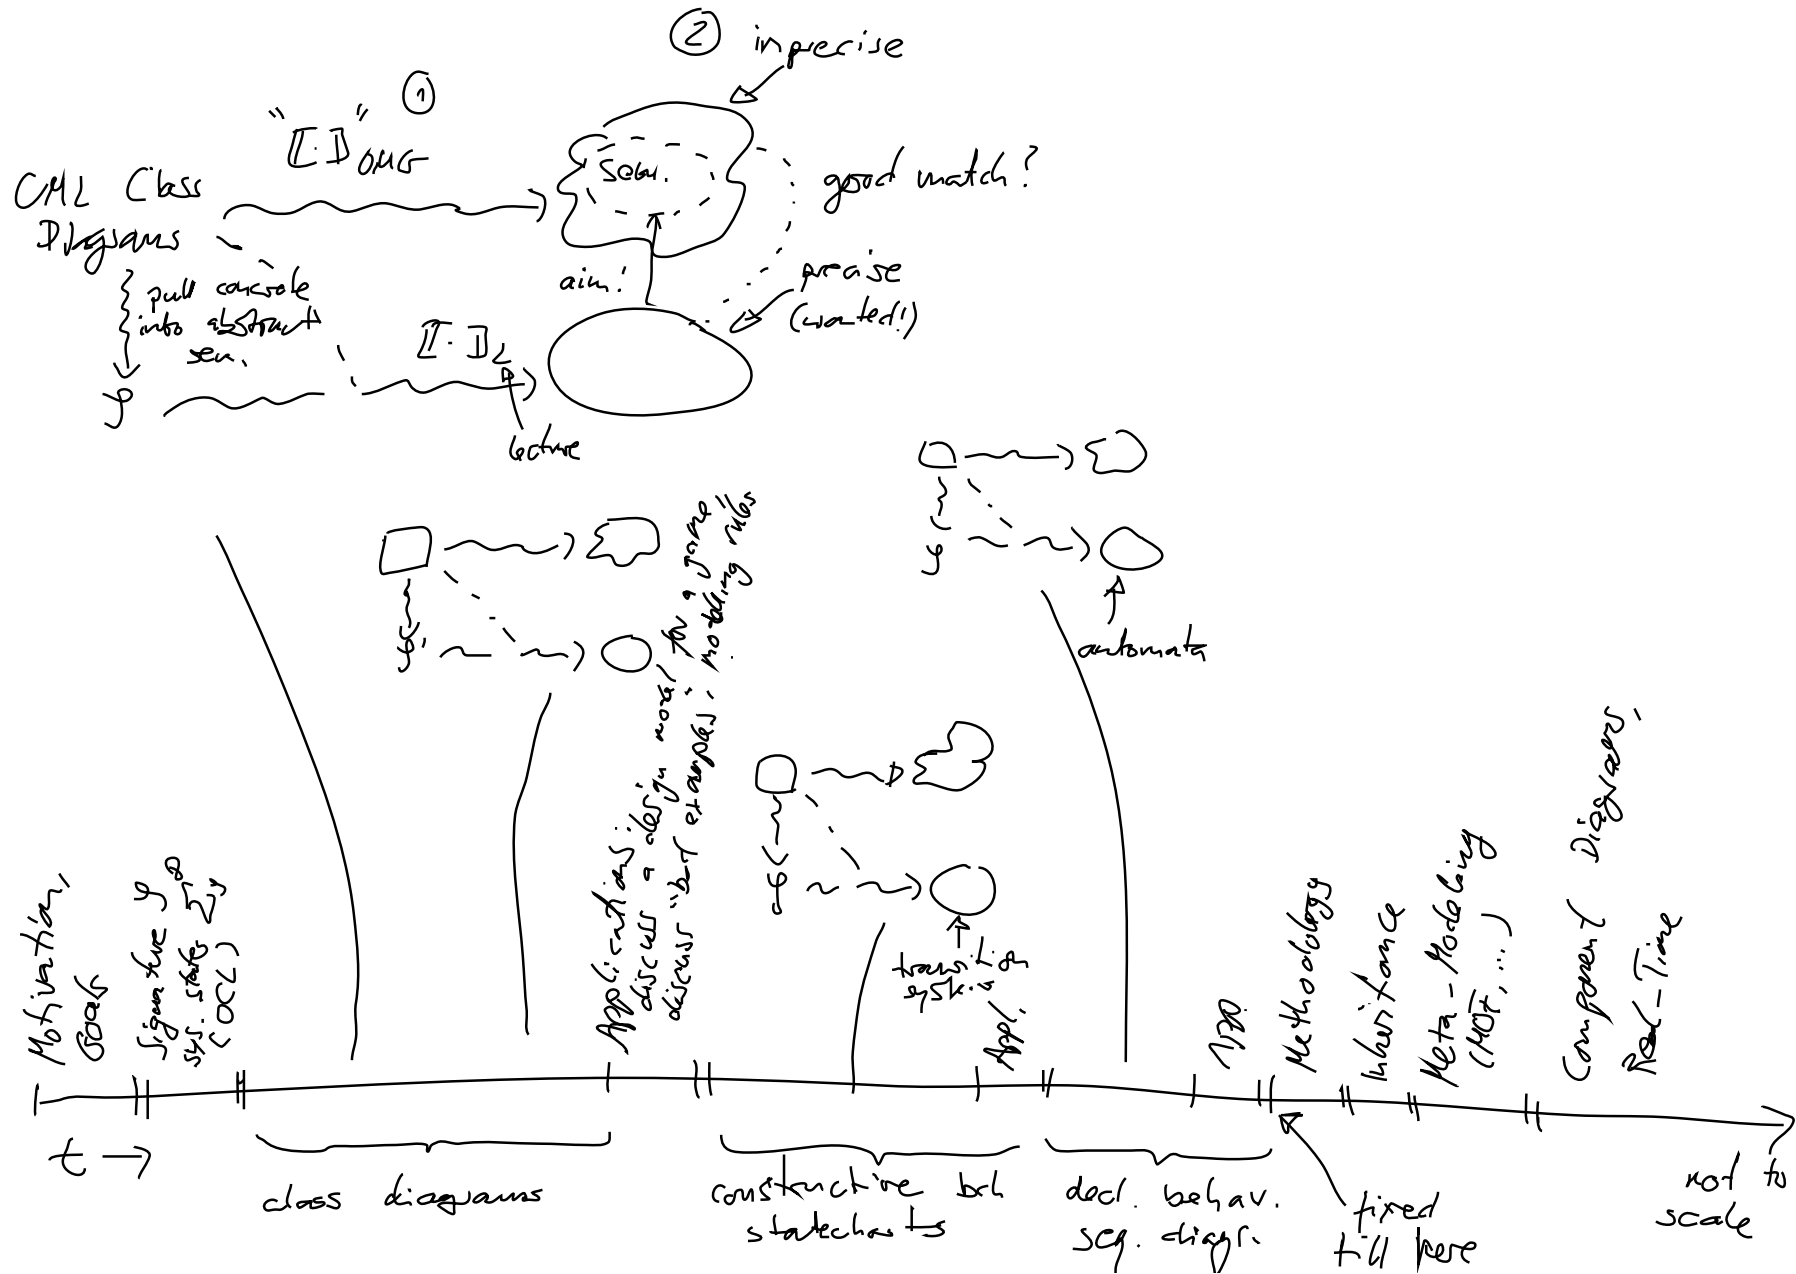 ② imprecise
①
"⟦·⟧"OMG
UML Class
Diagrams
Sem.
good match?
aim!
precise
(wanted!)
pull concrete
into abstract
sem.
⟦·⟧L
𝒮
lecture
𝒮
automata
𝒮
𝒮
transition
system
Motivation,
Goals
Signature 𝒮
sys. states Σ
(OCL)
Applications:
discuss a design model for a game
discuss "bad" examples; modelling rules
Appl.
App.
Methodology
Inheritance
Meta-Modeling
(MOF, ...)
Component Diagrams,
Real-Time
t →
class diagrams
constructive beh
statecharts
decl. behav.
seq. diagr.
fixed
till here
not to
scale